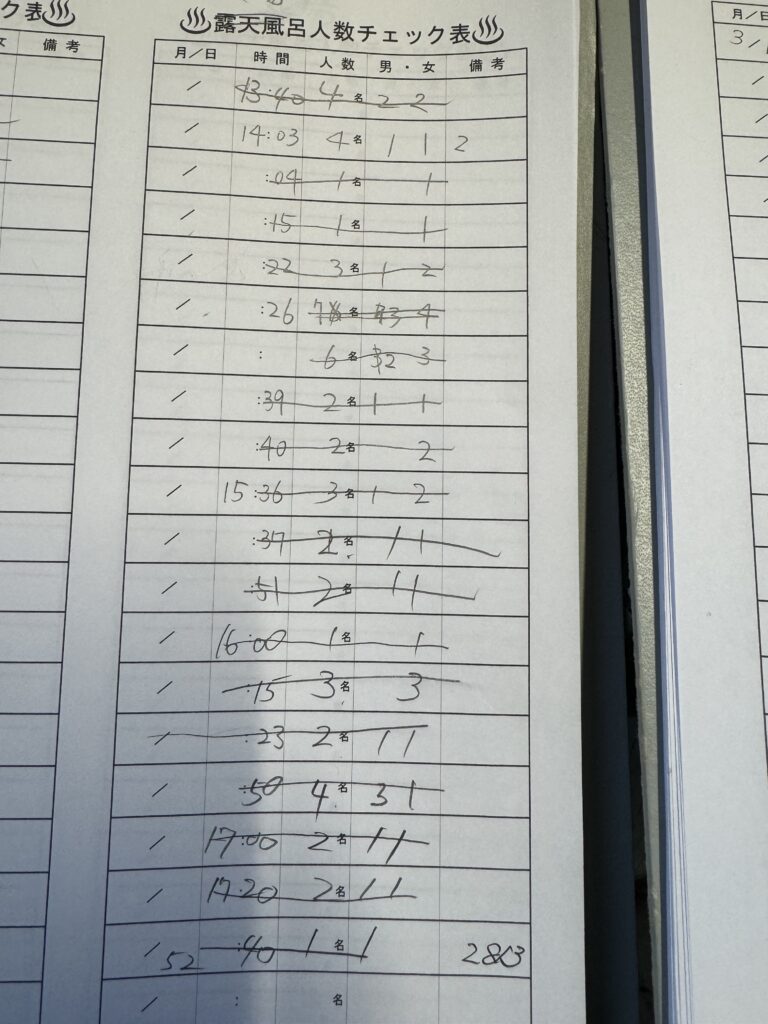 ク表♨
女 備考
♨露天風呂人数チェック表♨
月/日 時間 人数 男・女 備考
/ 13:40 4名 2 2
/ 14:03 4名 1 1 2
/ :04 1名 1
/ :15 1名 1
/ :22 3名 1 2
/ :26 名 3 4
/ : 6名 2 3
/ :39 2名 1 1
/ :40 2名 2
/ 15:36 3名 1 2
/ :37 2名 1 1
/ :51 2名 1 1
/ 16:00 1名 1
/ :15 3名 3
/ :23 2名 1 1
/ :50 4名 3 1
/ 17:00 2名 1 1
/ 17:20 2名 1 1
/ 52 :40 1名 1
/ : 名
月/日
3/